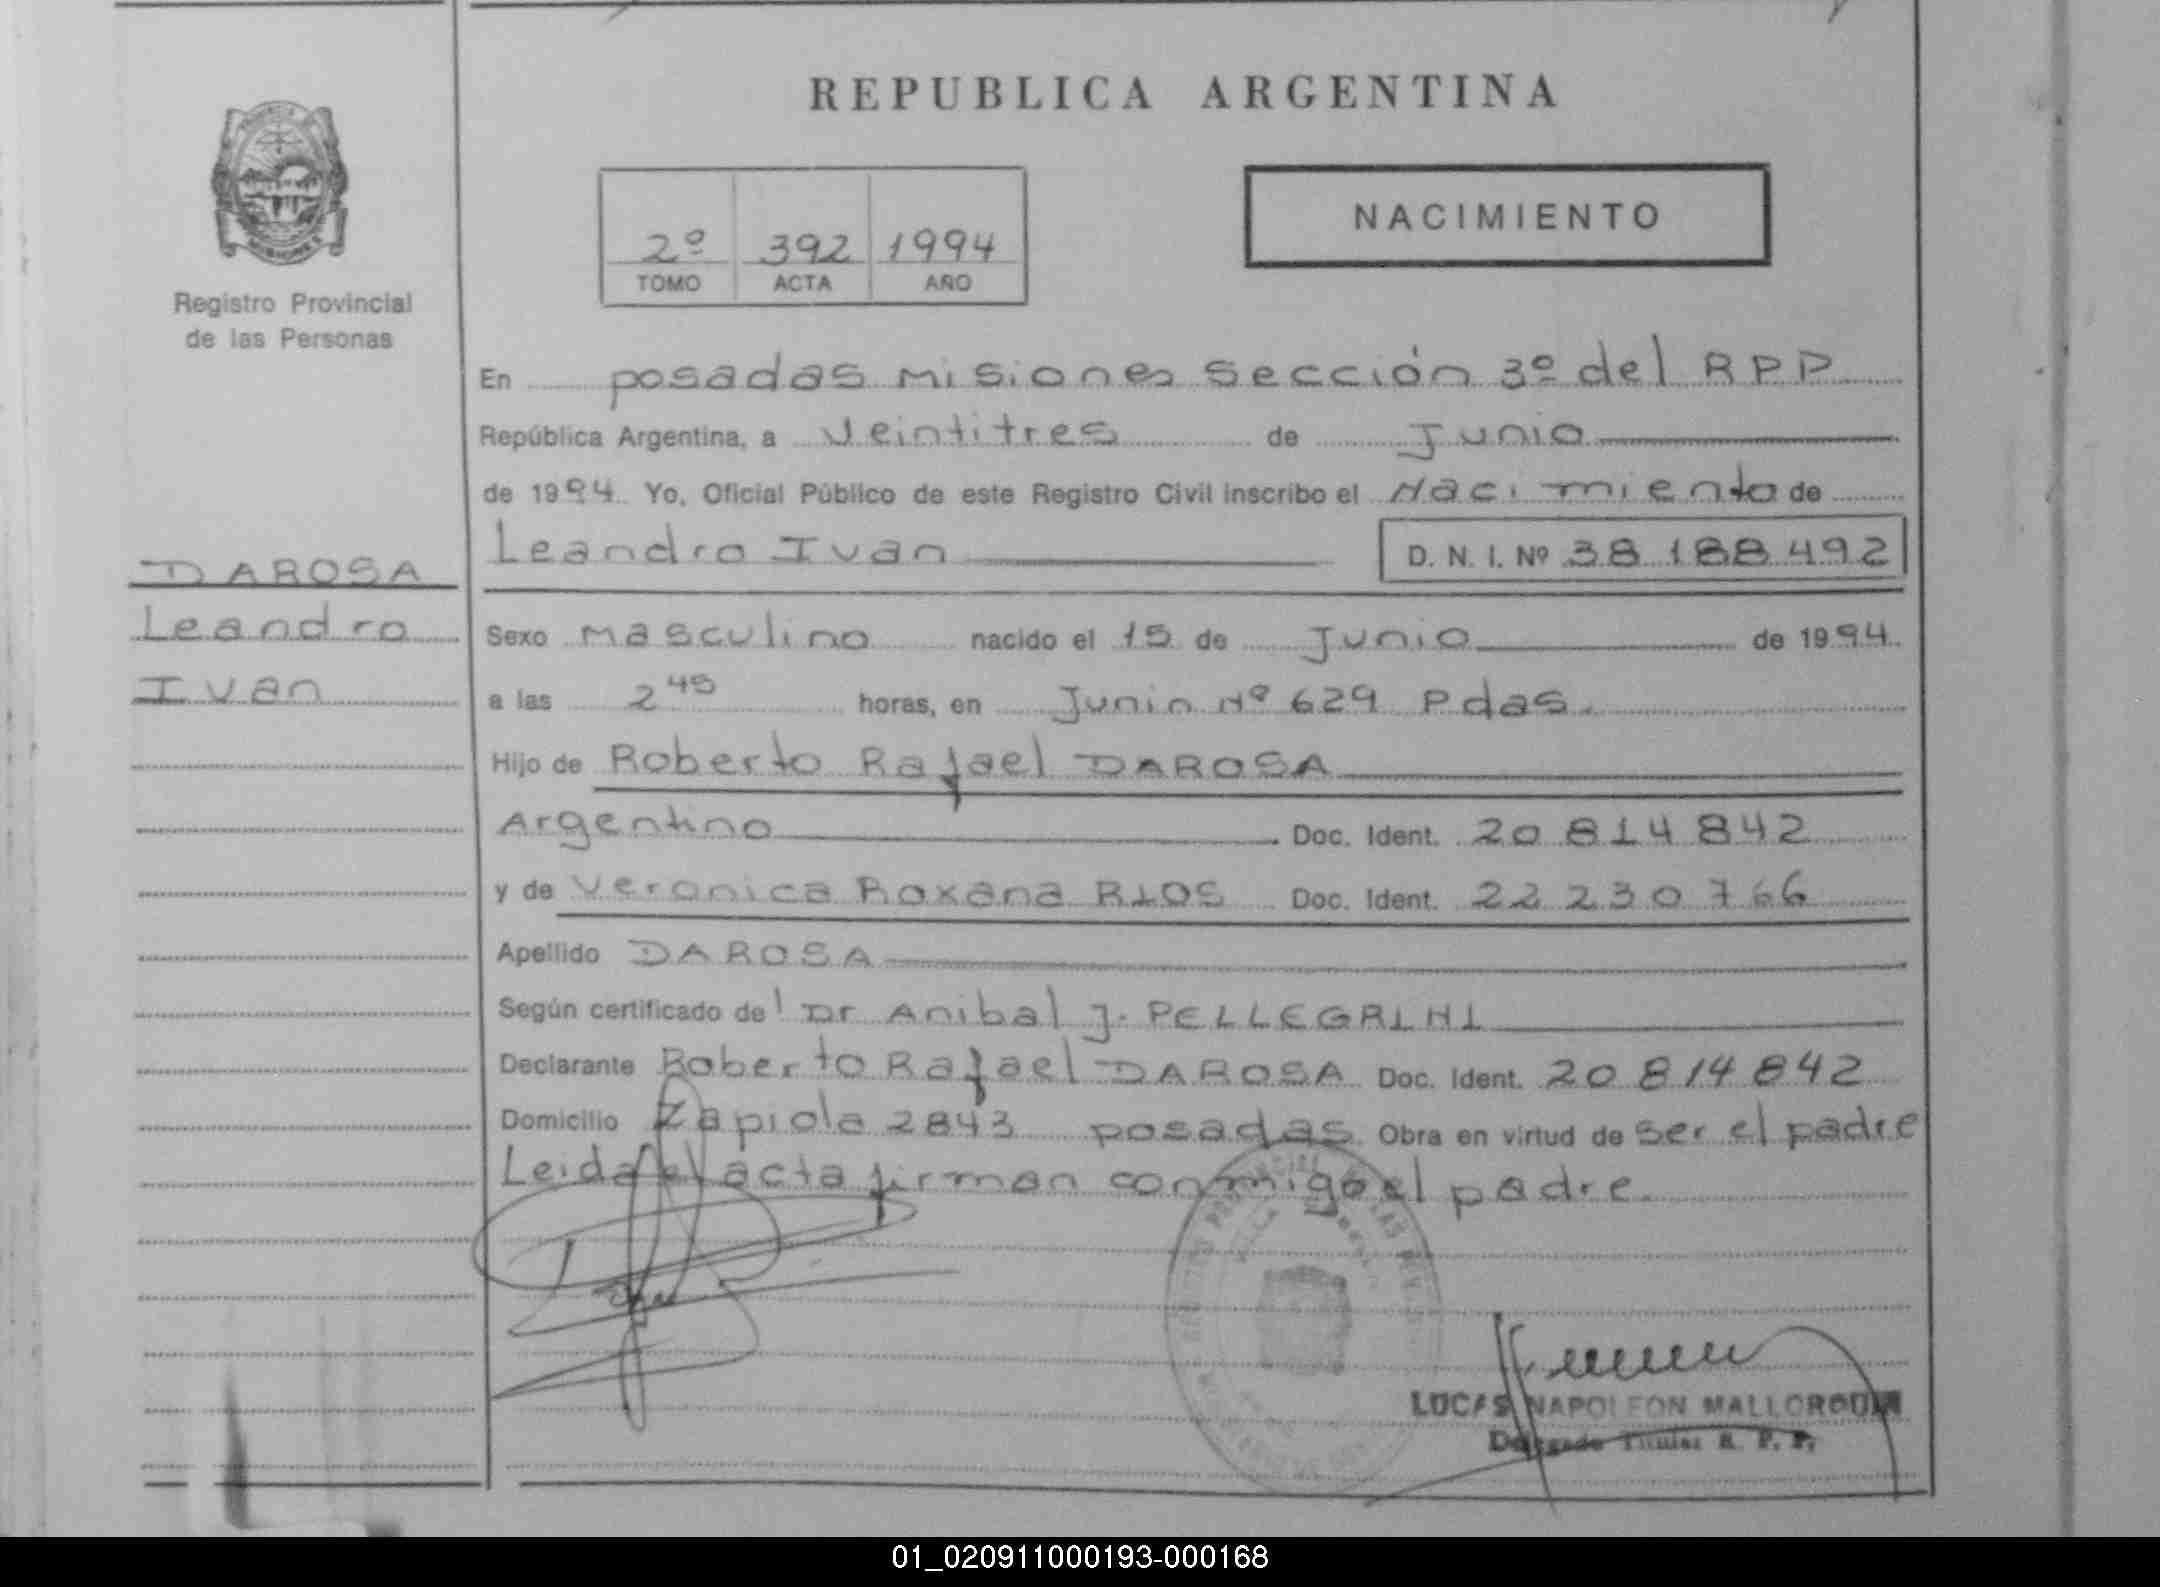 REPUBLICA ARGENTINA
Registro Provincial
de las Personas
2º 392 1994
TOMO ACTA AÑO
NACIMIENTO
DAROSA
Leandro
Ivan
En posadas Misiones Sección 3º del RPP
República Argentina, a Veintitres de Junio
de 1994 Yo, Oficial Público de este Registro Civil inscribo el Nacimiento de
Leandro Ivan D. N. I. Nº 38 188 492
Sexo Masculino nacido el 15 de Junio de 1994
a las 2 45 horas, en Junin Nº 629 Pdas.
Hijo de Roberto Rafael DAROSA
Argentino Doc. Ident. 20 814 842
y de Veronica Roxana RIOS Doc. Ident. 22 230 766
Apellido DAROSA
Según certificado de l Dr Anibal J. PELLEGRINI
Declarante Roberto Rafael DAROSA Doc. Ident. 20 814 842
Domicilio Zapiola 2843 posadas Obra en virtud de ser el padre
Leida el acta firman conmigo el padre
LUCAS NAPOLEON
Delegado Titular R. P. P.
01_020911000193-000168